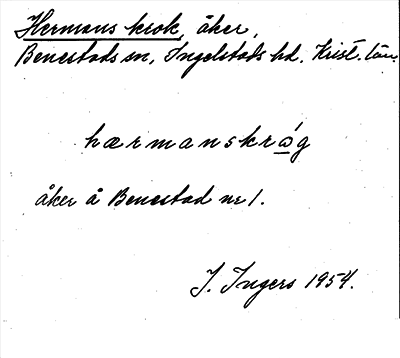 Hermans krok, åker,
Benestads sn, Ingelstads hd. Krist. län.
hærmanskrώg
åker å Benestad nr 1.
I. Ingers 1954.